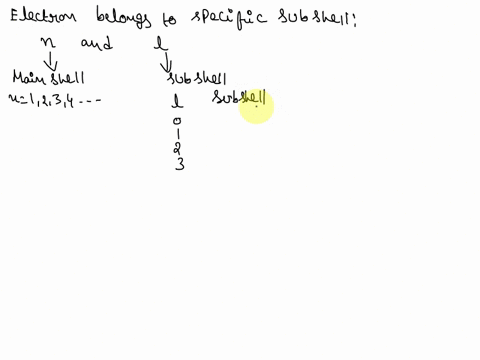 Electron belongs to specific subshell:
n and l
Main shell subshell
n=1,2,3,4 --- l subshell
0
1
2
3